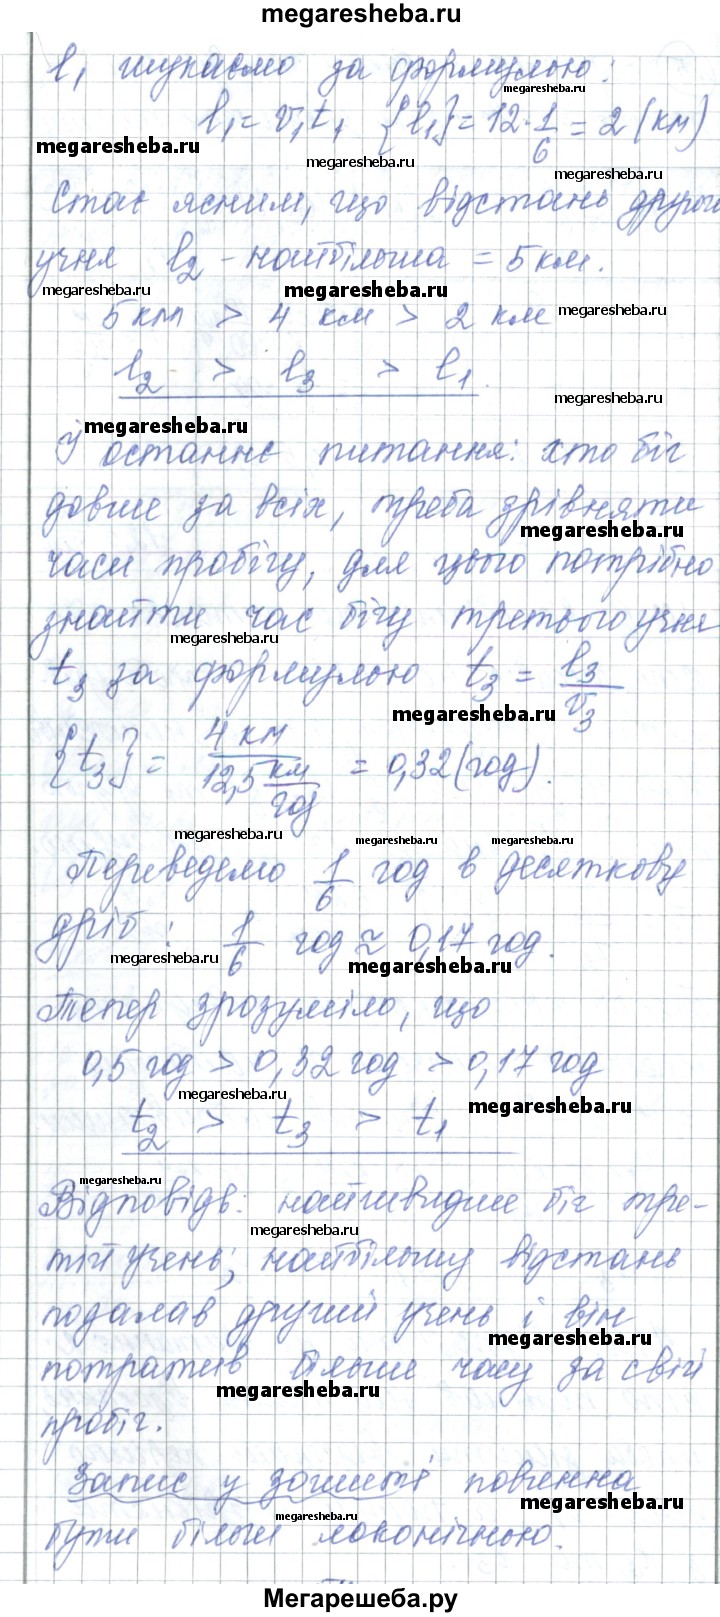 megaresheba.ru
l₁ шукаємо за формулою:
megaresheba.ru
l₁ = v₁t₁ {l₁} = 12 · 1/6 = 2 (км)
megaresheba.ru
megaresheba.ru
megaresheba.ru
Стає ясним, що відстань другого
учня l₂ - найбільша = 5 км.
megaresheba.ru megaresheba.ru megaresheba.ru
5 км > 4 км > 2 км
megaresheba.ru
l₂ > l₃ > l₁.
megaresheba.ru
megaresheba.ru
Й останнє питання: хто біг
довше за всіх, треба зрівняти
megaresheba.ru
часи пробігу, для цього потрібно
знайти час бігу третього учня
megaresheba.ru
t₃ за формулою t₃ = l₃/v₃
megaresheba.ru
{t₃} = 4 км / 12,5 км/год = 0,32 (год).
megaresheba.ru megaresheba.ru megaresheba.ru
Переведемо 1/6 год в десяткову
дріб: 1/6 год ≈ 0,17 год.
megaresheba.ru
megaresheba.ru
Тепер зрозуміло, що
0,5 год > 0,32 год > 0,17 год
megaresheba.ru
megaresheba.ru
t₂ > t₃ > t₁
megaresheba.ru
Відповідь: найшвидше біг тре-
megaresheba.ru
тій учень; найбільшу відстань
подалав другий учень і він
megaresheba.ru
потратив більше часу за свій
megaresheba.ru
пробіг.
Запис у зошиті повинна
megaresheba.ru
megaresheba.ru
бути більш лаконічною.
Мегарешеба.ру